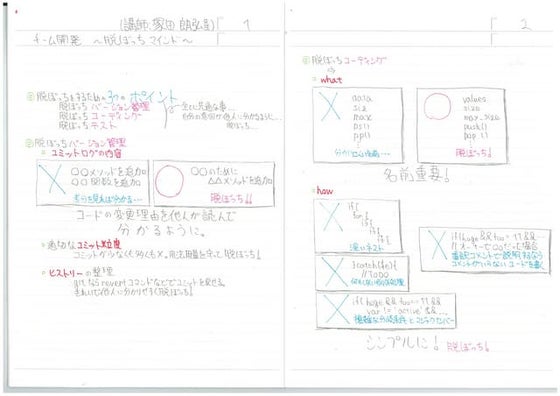 (講師:塚田 朗弘さん)
1
チーム開発 ～脱ぼっちマインド～
脱ぼっちをするための3つのポイント
脱ぼっち バージョン管理
脱ぼっち コーディング
脱ぼっち テスト
全てに共通な事…
自分の意図が他人に分かるように…
脱ぼっち
脱ぼっちバージョン管理
コミットログの内容
○○メソッドを追加
○○関数を追加
差分を見れば分かる…
○○のために
△△メソッドを追加
脱ぼっち!
コードの変更理由を他人が読んで
分かるように。
適切なコミット粒度
コミットが少なくても多くても×。
脱ぼっち!
ヒストリーの整理
gitならrevertコマンドなどでコミットを戻せる。
きれいで他人に分かりやすく脱ぼっち!
2
脱ぼっちコーディング
what
data
siz
max
ps1()
pp1()
分かりにくい名前…
values
size
max_size
push()
pop()
脱ぼっち!
名前重要!
how
if{
for{
if{
if{
深いネスト
catch(e){
//TODO
if(hoge && foo == 11 &&
var != 'active' &&...
複雑な分岐条件とマジックナンバー
if(hoge && foo == 11 &&...
コメントがいらないコードを書く
シンプルに! 脱ぼっち!